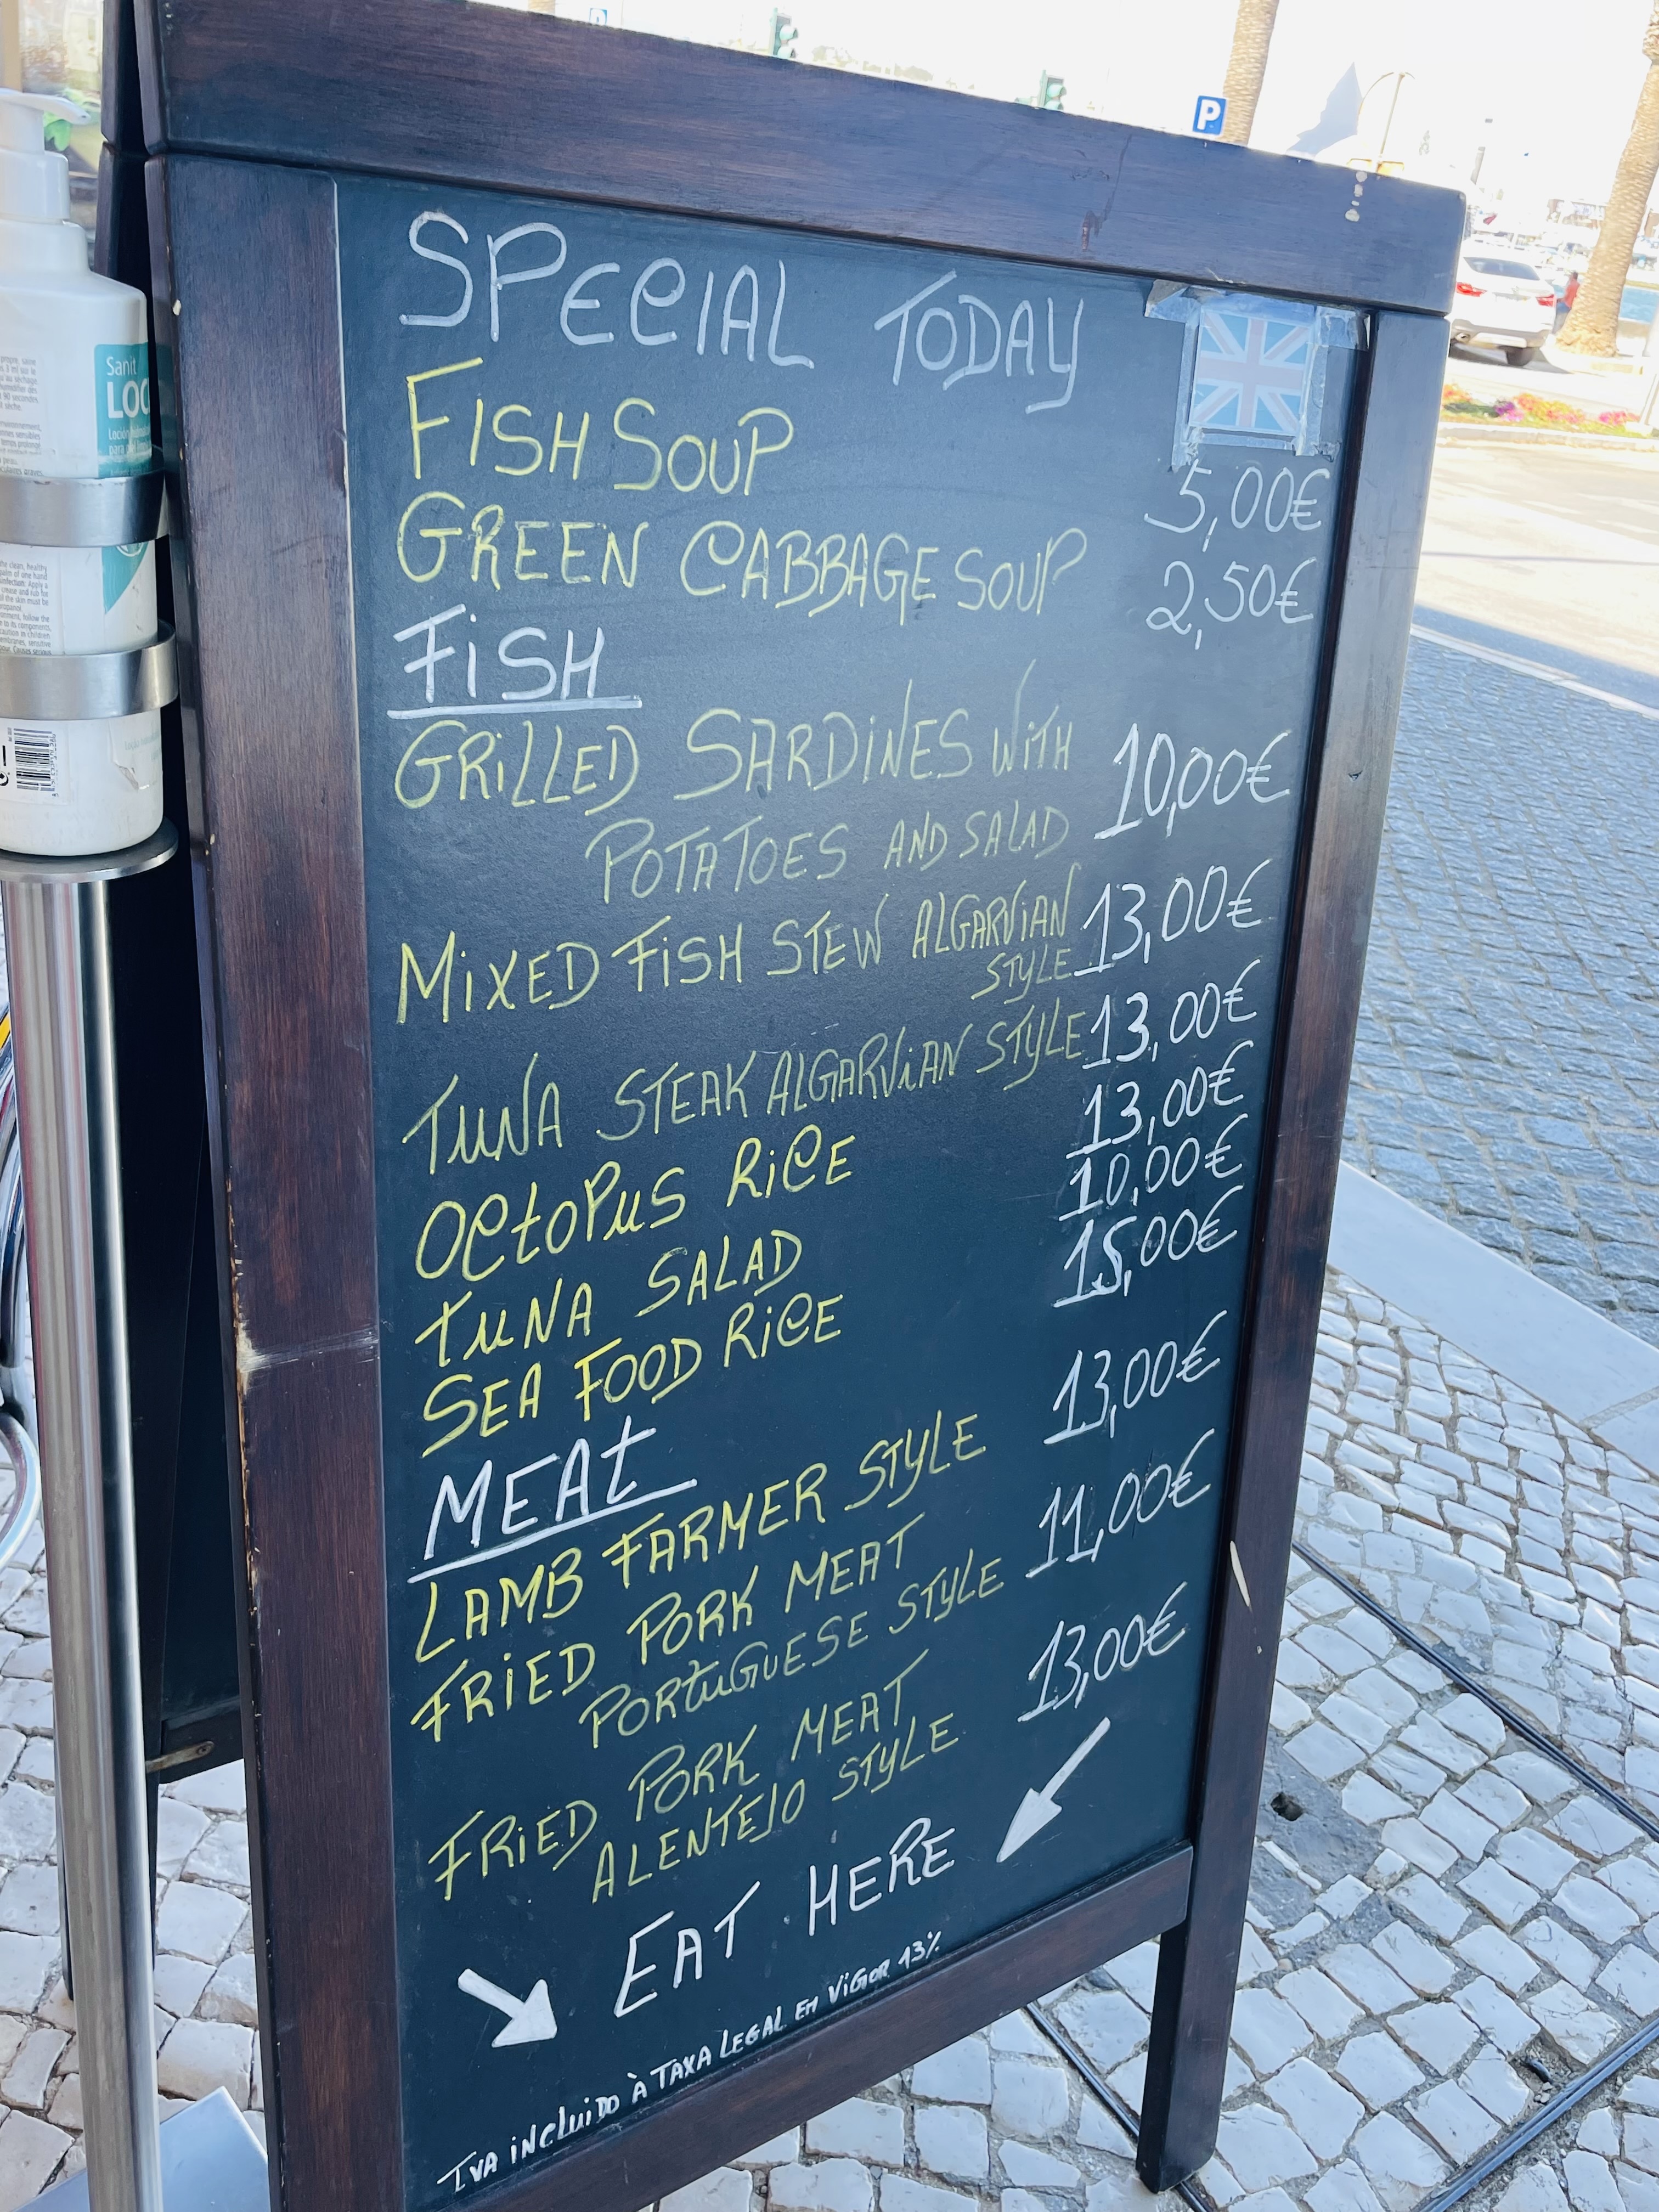 P
SPECIAL TODAY
FISH SOUP 5,00€
GREEN CABBAGE SOUP 2,50€
FISH
GRILLED SARDINES WITH 10,00€
POTATOES AND SALAD
MIXED FISH STEW ALGARVIAN 13,00€
STYLE
TUNA STEAK ALGARVIAN STYLE 13,00€
OCTOPUS RICE 13,00€
TUNA SALAD 10,00€
SEA FOOD RICE 15,00€
MEAT
LAMB FARMER STYLE 13,00€
FRIED PORK MEAT 11,00€
PORTUGUESE STYLE
FRIED PORK MEAT 13,00€
ALENTEJO STYLE
EAT HERE
IVA INCLUIDO À TAXA LEGAL EM VIGOR 13%
Sanit